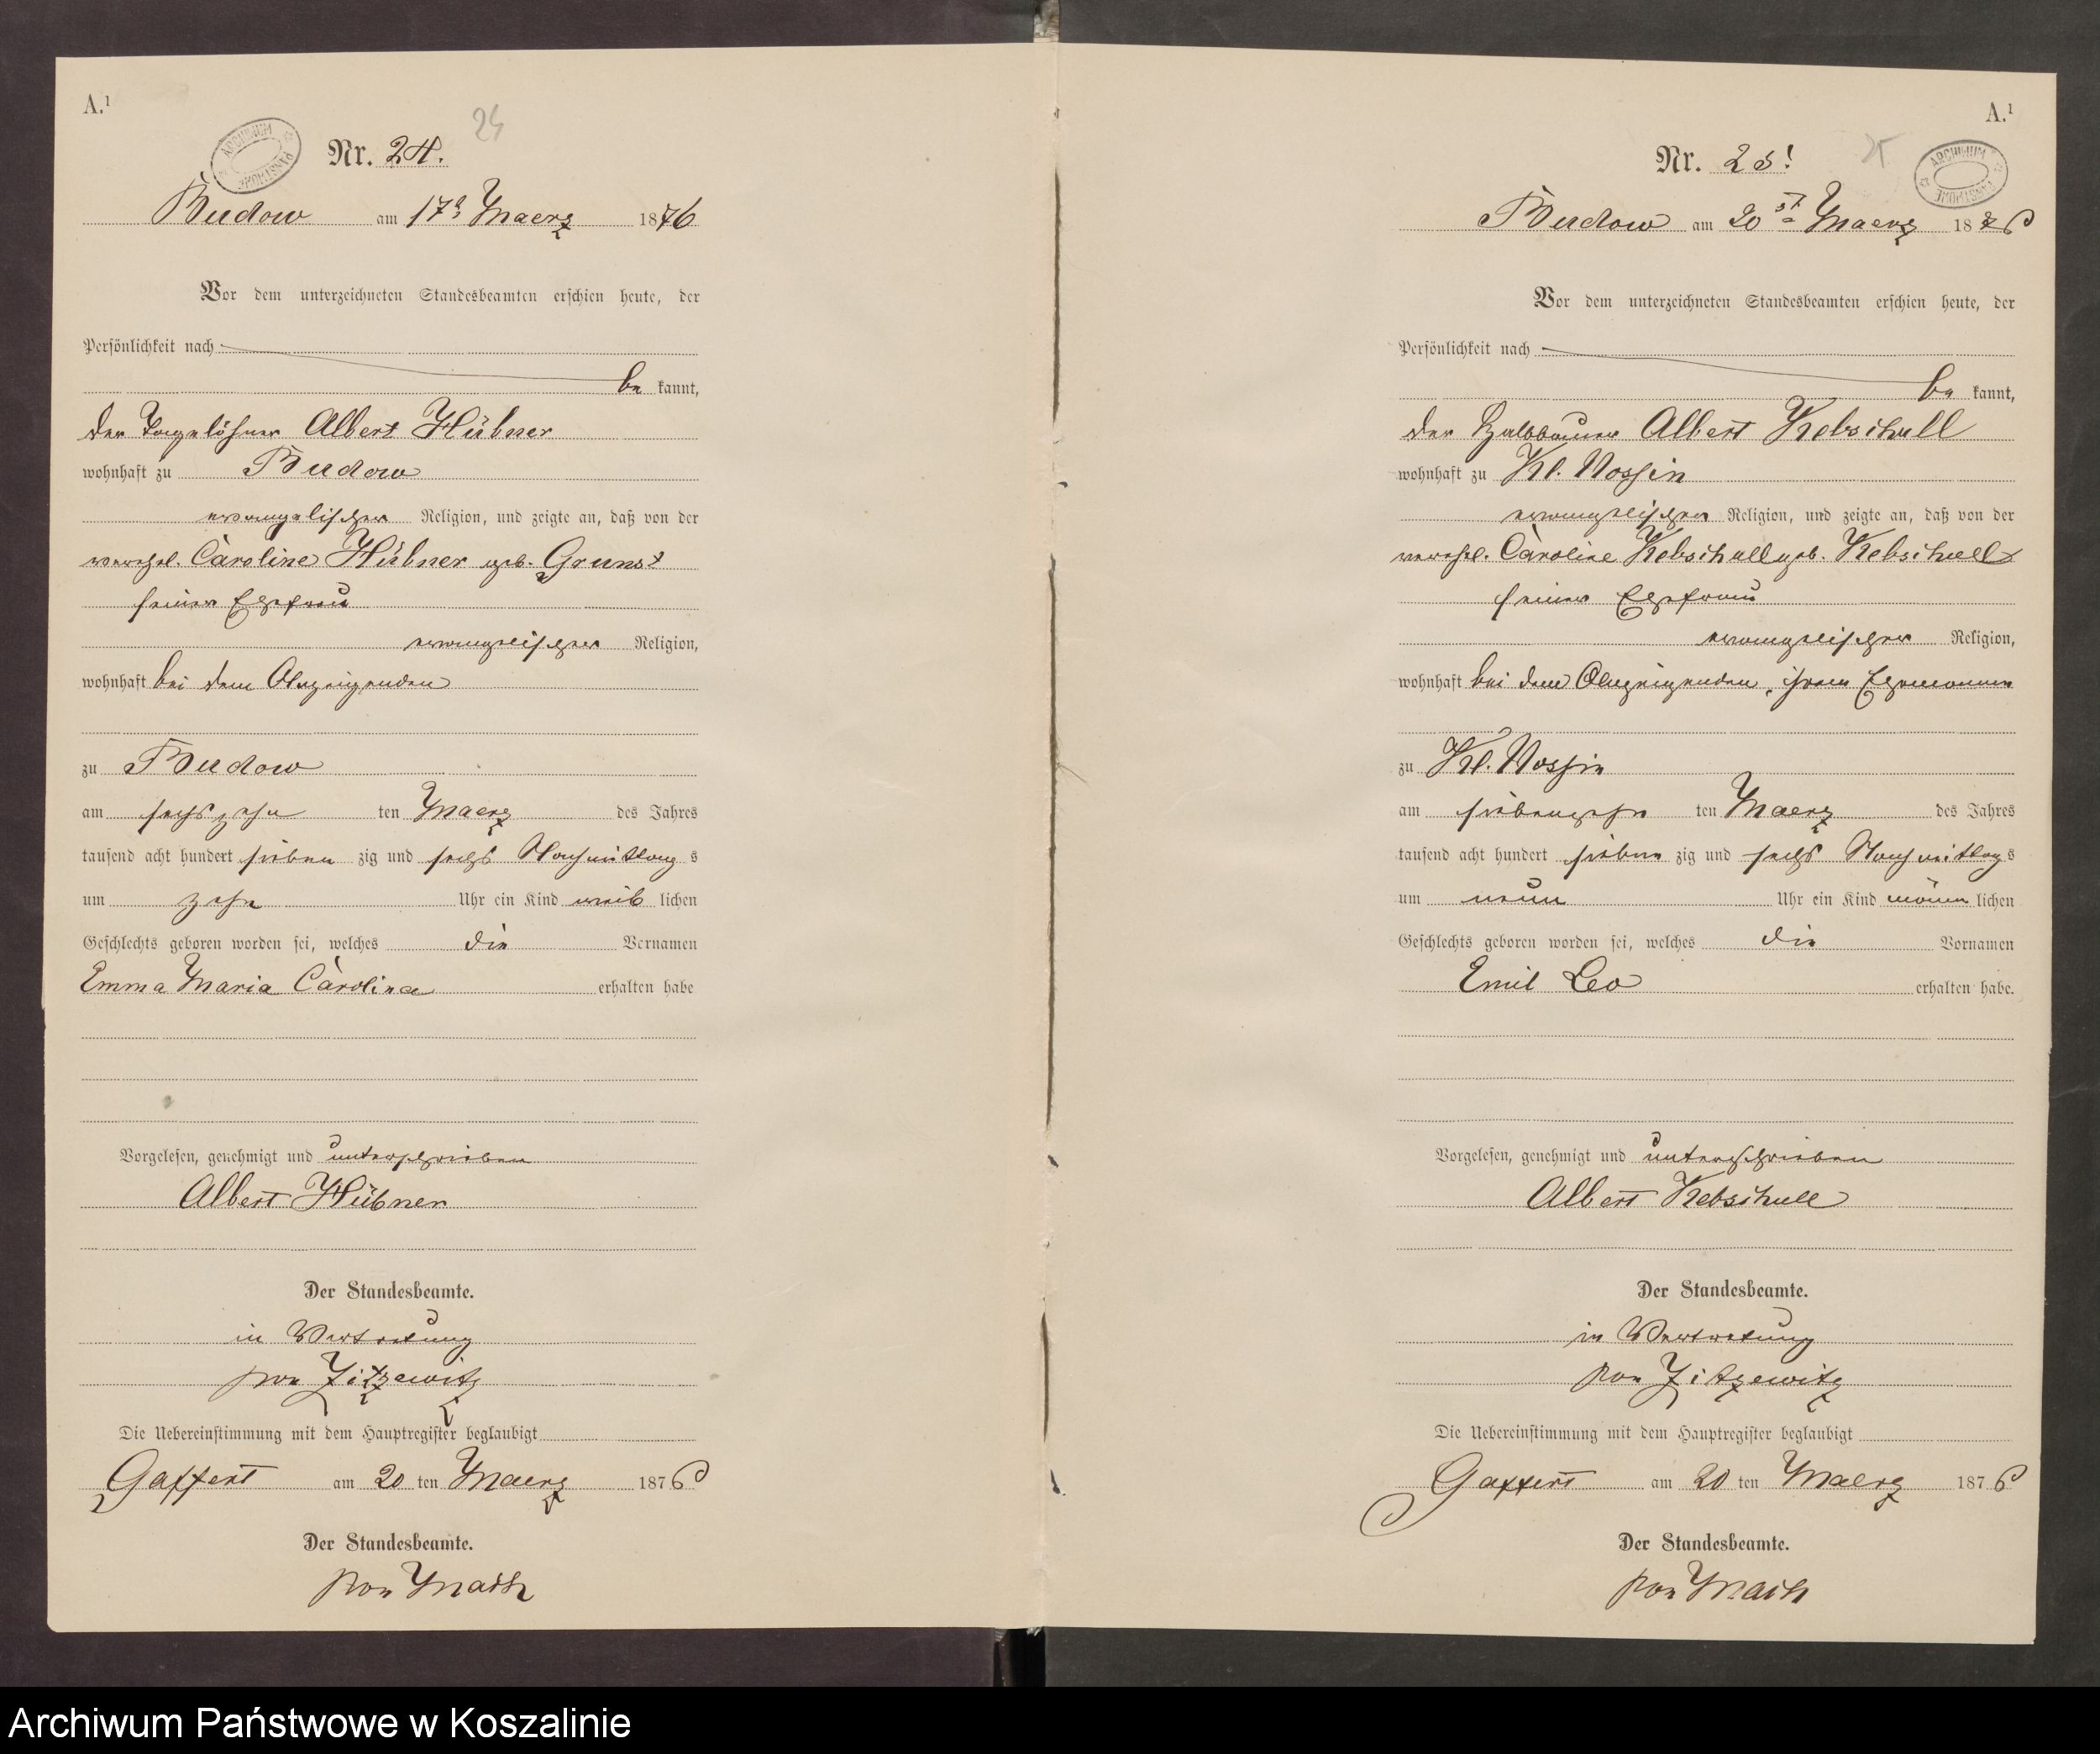 A.¹
ARCHIWUM PAŃSTWOWE
24
Nr. 24.
Budow am 17ᵗ Maerz 1876
Vor dem unterzeichneten Standesbeamten erschien heute, der
Persönlichkeit nach
be kannt,
der Tagelöhner Albert Hübner
wohnhaft zu Budow
evangelischer Religion, und zeigte an, daß von der
verehel. Caroline Hübner geb. Grunst
seiner Ehefrau
evangelischer Religion,
wohnhaft bei dem Anzeigenden
zu Budow
am sechszehn ten Maerz des Jahres
tausend acht hundert sieben zig und sechs Nachmittag s
um zehn Uhr ein Kind weib lichen
Geschlechts geboren worden sei, welches die Vornamen
Emma Maria Carolina erhalten habe
Vorgelesen, genehmigt und unterschrieben
Albert Hübner
Der Standesbeamte.
in Vertretung
von Zitzewitz
Die Uebereinstimmung mit dem Hauptregister beglaubigt
Gaffert am 20 ten Maerz 1876
Der Standesbeamte.
von
A.¹
ARCHIWUM PAŃSTWOWE
25
Nr. 25!
Budow am 20ˢᵗ Maerz 1876
Vor dem unterzeichneten Standesbeamten erschien heute, der
Persönlichkeit nach
be kannt,
der Halbbauer Albert Kebschull
wohnhaft zu Kl. Nossin
evangelischer Religion, und zeigte an, daß von der
verehel. Caroline Kebschull geb. Kebschull
seiner Ehefrau
evangelischer Religion,
wohnhaft bei dem Anzeigenden, ihrem Ehemanne
zu Kl. Nossin
am siebenzehn ten Maerz des Jahres
tausend acht hundert sieben zig und sechs Nachmittag s
um neun Uhr ein Kind männ lichen
Geschlechts geboren worden sei, welches die Vornamen
Emil Leo erhalten habe.
Vorgelesen, genehmigt und unterschrieben
Albert Kebschull
Der Standesbeamte.
in Vertretung
von Zitzewitz
Die Uebereinstimmung mit dem Hauptregister beglaubigt
Gaffert am 20 ten Maerz 1876
Der Standesbeamte.
von
Archiwum Państwowe w Koszalinie